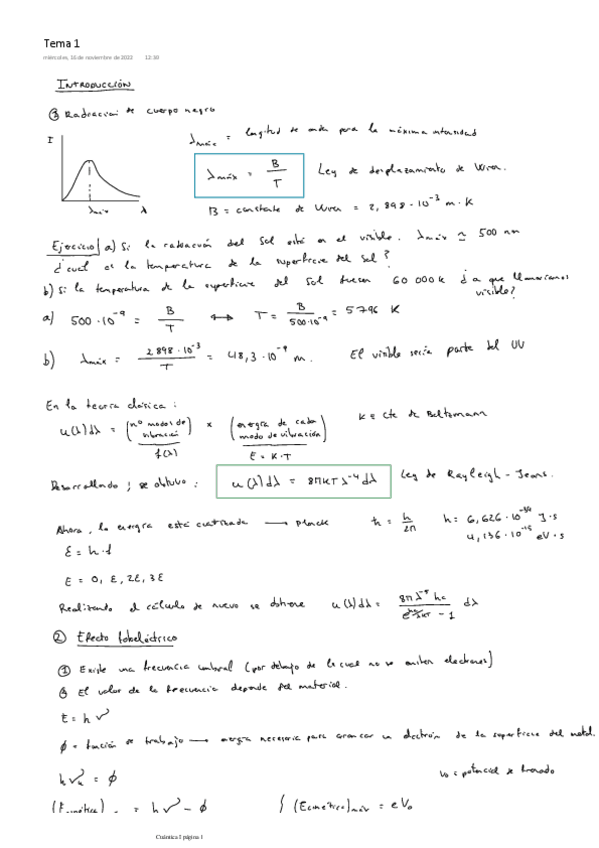 Tema 1
miércoles, 16 de noviembre de 2022 12:30
INTRODUCCIÓN
① Radiación de cuerpo negro
I
λmáx λ
λmáx = longitud de onda para la máxima intensidad
λmáx = B/T Ley de desplazamiento de Wien.
B = constante de Wien = 2,898·10⁻³ m·K
Ejercicio a) Si la radiación del Sol está en el visible. λmáx ≃ 500 nm
¿cuál es la temperatura de la superficie del sol?
b) Si la temperatura de la superficie del Sol fuesen 60 000 K ¿a que llamaríamos
visible?
a) 500·10⁻⁹ = B/T ⟷ T = B/500·10⁻⁹ = 5796 K
b) λmáx = 2898·10⁻³/T = 48,3·10⁻⁹ m. El visible sería parte del UV
En la teoría clásica:
u(λ)dλ = (nº modos de vibración) × (energía de cada modo de vibración) K ≡ Cte de Boltzmann
f(λ) E = K·T
Desarrollando, se obtuvo: u(λ)dλ = 8πKTλ⁻⁴dλ Ley de Rayleigh-Jeans.
Ahora, la energía está cuantizada ⟶ Planck ħ = h/2π h = 6,626·10⁻³⁴ J·s
4,136·10⁻¹⁵ eV·s
ε = h·f
E = 0, ε, 2ε, 3ε
Realizando el cálculo de nuevo se obtiene u(λ)dλ = 8πλ⁻⁵hc / (e^(hc/λKT) − 1) dλ
② Efecto fotoeléctrico
① Existe una frecuencia umbral (por debajo de la cual no se emiten electrones)
② El valor de la frecuencia depende del material.
E = hν
ϕ = función de trabajo ⟶ energía necesaria para arrancar un electrón de la superficie del metal.
hν = ϕ V₀ = potencial de frenado
(Ecinética) = hν − ϕ (Ecinética)máx = eV₀
Cuántica I página 1